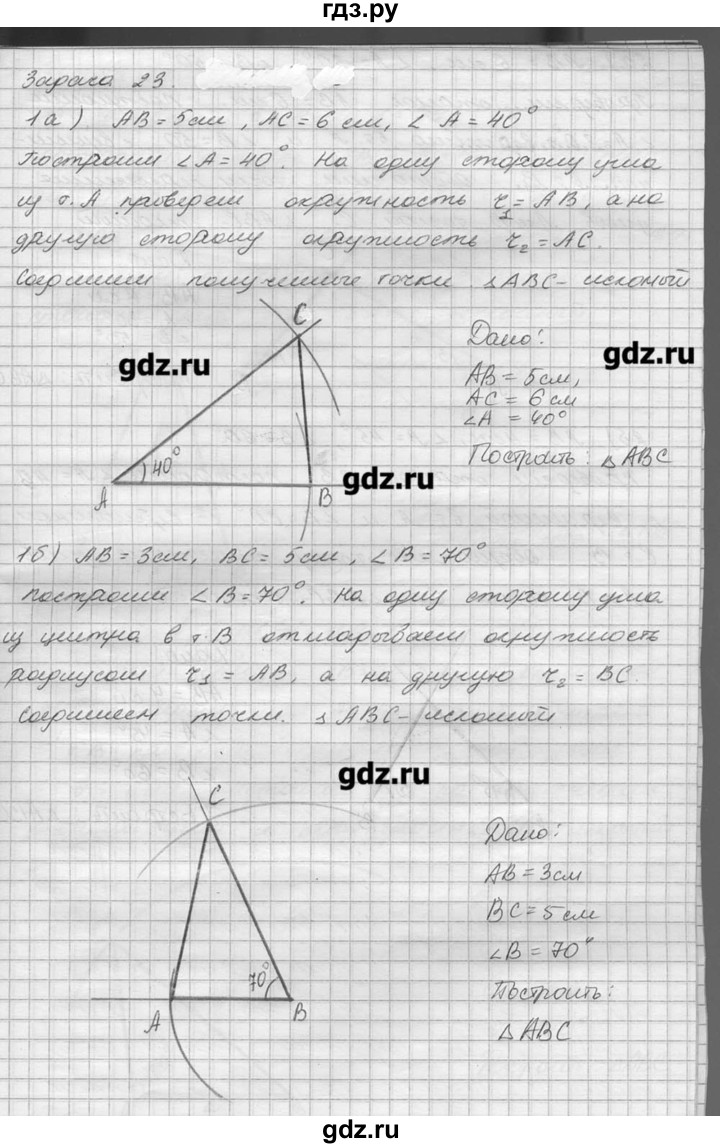 гдз.ру
Задача 23.
1а) AB = 5см, AC = 6 см, ∠ A = 40°
Построим ∠A = 40°. На одну сторону угла
из т. A проведем окружность r₁ = AB, а на
другую сторону окружность r₂ = AC.
Соединим полученные точки. △ABC - искомый
C
Дано:
gdz.ru
gdz.ru
AB = 5см,
AC = 6 см
∠A = 40°
40°
Построить: △ABC
gdz.ru
A
B
1б) AB = 3см, BC = 5см, ∠B = 70°
построим ∠B = 70°. На одну сторону угла
из центра в т. B откладываем окружность
радиусом r₁ = AB, а на другую r₂ = BC.
Соединяем точки. △ABC - искомый
gdz.ru
C
Дано:
AB = 3см
BC = 5 см
∠B = 70°
70°
Построить:
A
B
△ABC
gdz.ru